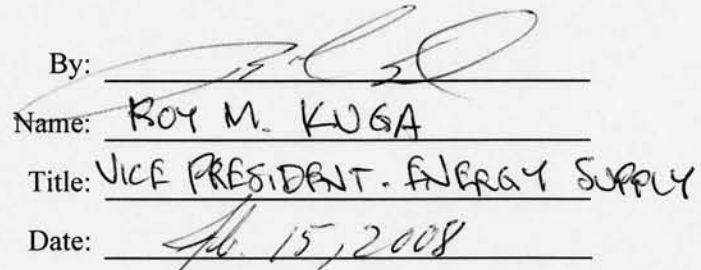 By:
Name: ROY M. KUGA
Title: VICE PRESIDENT. ENERGY SUPPLY
Date: Feb. 15, 2008